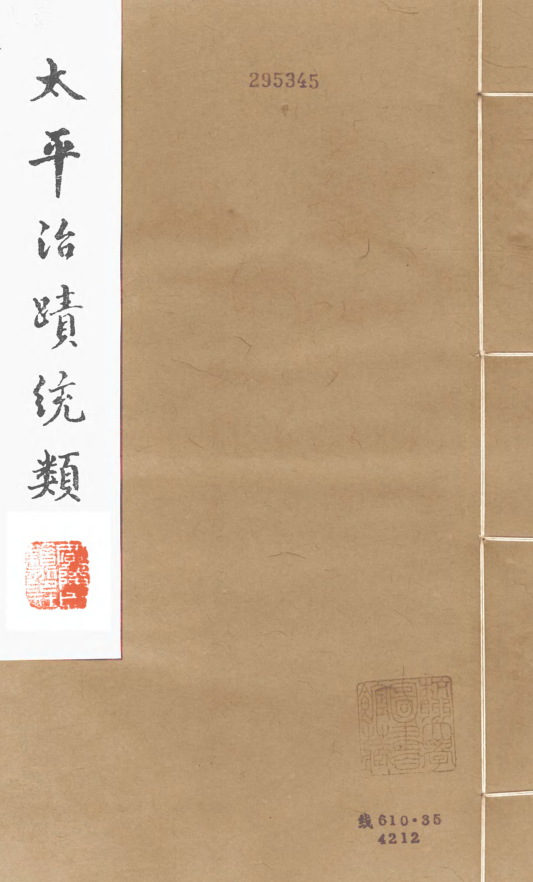 太平治蹟統類
295345
线610·35
4212